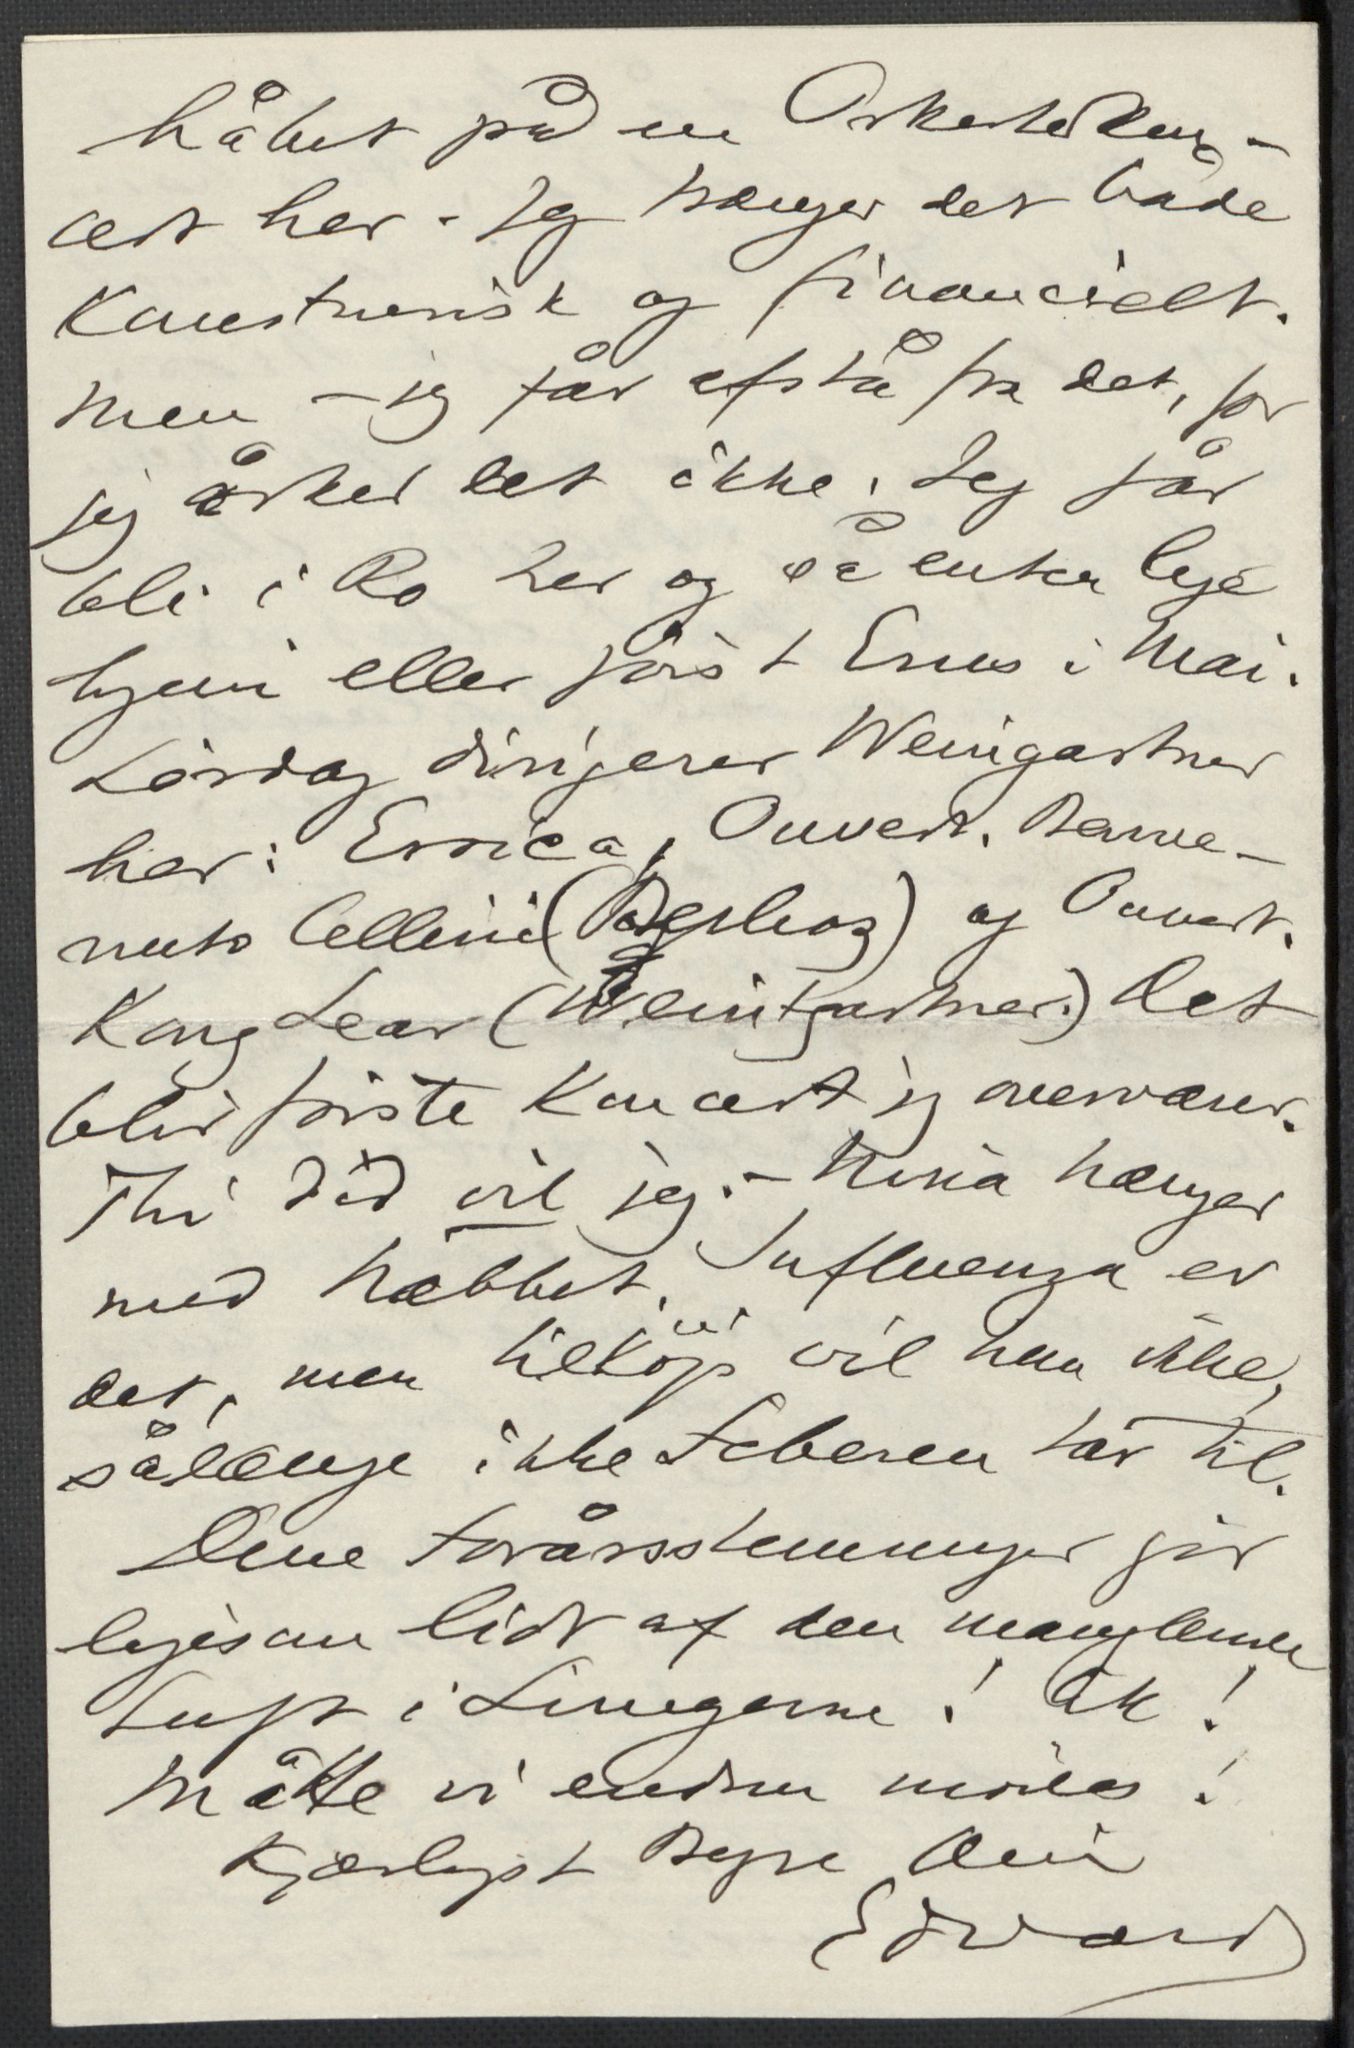 håbet på en Orkesterkon-
cert her. Jeg trænger det både
kunstnerisk og financielt.
Men – jeg får afstå fra det, for
jeg orker det ikke. Jeg får
bli i Ro her og så enten rejse
hjem eller først Ems i Mai.
Lørdag dirigerer Weingartner
her: Eroica, Ouvert. Benve-
nuto Cellini (Berlioz) og Ouvert.
Kong Lear (Weingartner.) Det
blir første Koncert jeg overværer.
Thi did vil jeg. – Nina hænger
med Næbbet. Influenza er
det, men tilköjs vil hun ikke,
sålænge ikke Feberen tar til.
Dine Forårsstemninger gir
ligesom lidt af den manglende
Luft i Lungerne! Ak!
Måtte vi endnu mödes!
Kjærligst Beyer Din
Edvard